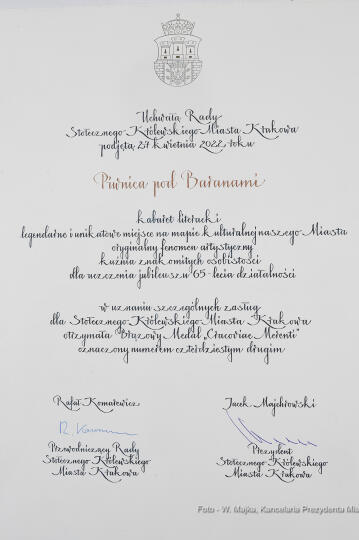 Uchwałą Rady
Stołecznego Królewskiego Miasta Krakowa
podjętą 27 kwietnia 2022 roku
Piwnica pod Baranami
kabaret literacki
legendarne i unikatowe miejsce na mapie kulturalnej naszego Miasta
oryginalny fenomen artystyczny
kuźnia znakomitych osobistości
dla uczczenia jubileuszu 65-lecia działalności
w uznaniu szczególnych zasług
dla Stołecznego Królewskiego Miasta Krakowa
otrzymała Brązowy Medal „Cracoviae Merenti”
oznaczony numerem czterdziestym drugim
Rafał Komarewicz
Jacek Majchrowski
Przewodniczący Rady
Stołecznego Królewskiego
Miasta Krakowa
Prezydent
Stołecznego Królewskiego
Miasta Krakowa
Foto - W. Majka, Kancelaria Prezydenta Mia